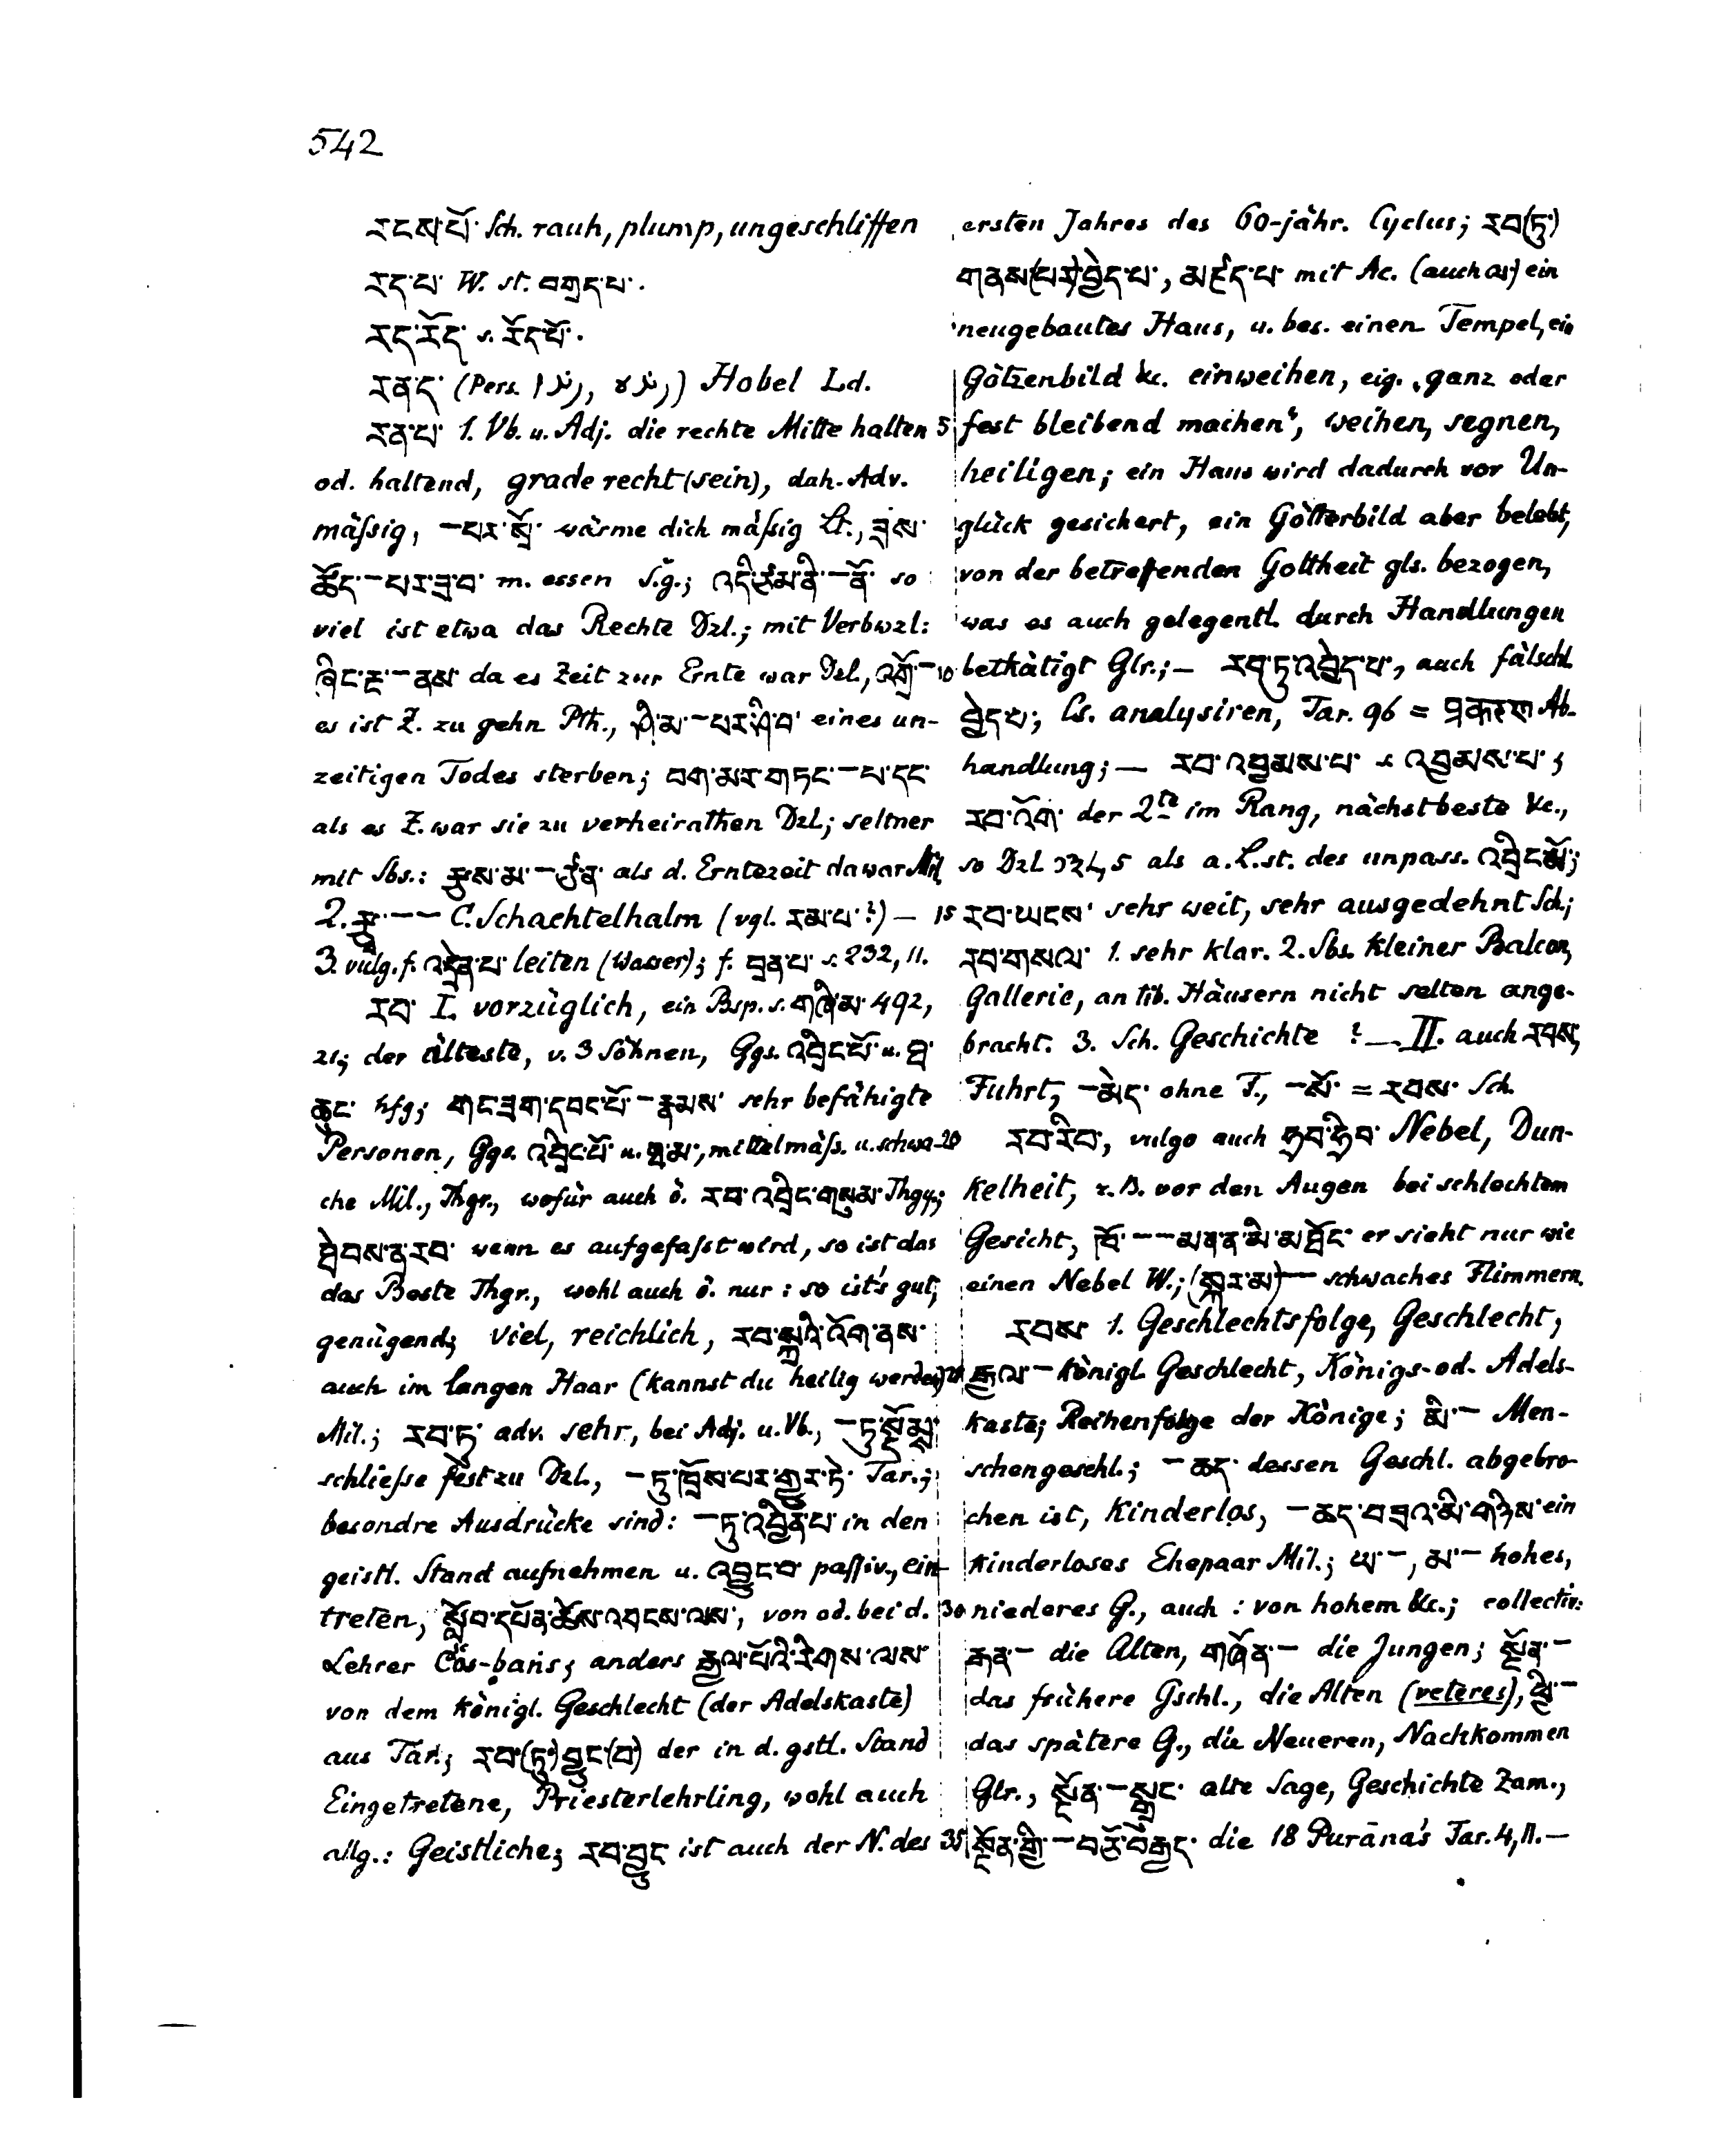 542
རངས་པོ་ Sch. rauh, plump, ungeschliffen
རད་པ་ W. st. བགྲད་པ་.
རད་རོད་ s. རོད་པོ་.
རནད་ (Pers. ) Hobel Ld.
རན་པ་ 1. Vb. u. Adj. die rechte Mitte halten 5
od. haltend, grade recht (sein), dah. Adv.
mäſsig, –པར་སྲོ་ wärme dich mäſsig Lt., ཟས་
ཚོད་–པར་ཟ་བ་ m. essen S.g.; འདི་ཙམ་ནི་–ནོ་ so
viel ist etwa das Rechte Dzl.; mit Verbwzl:
ཞིང་རྔ་–ནས་ da es Zeit zur Ernte war Dzl, འགྲོ་– 10
es ist Z. zu gehn Pth., ཤི་མ་–པར་ཤི་བ་ eines un-
zeitigen Todes sterben; བག་མར་གཏང་–པ་དང་
als es Z. war sie zu verheirathen Dzl; seltner
mit Sbs.: རྔས་མ་–ཙན་ als d. Erntezeit da war Mil
2. – – C. Schachtelhalm (vgl. རམ་པ་?) – 15
3. vulg. f. འདྲེན་པ་ leiten (Wasser); f. བྲན་པ་ s. 232, 11.
རབ་ I. vorzüglich, ein Bsp. s. གཞི་མ་ 492,
21; der älteste, v. 3 Söhnen, Ggs. འབྲིང་པོ་ u. ཐ་
ཆུང་ hfg; གང་ཟག་དབང་པོ་–རྣམས་ sehr befähigte
Personen, Ggs. འབྲིང་པོ་ u. ཐ་མ་, mittelmäſs. u. schwa- 20
che Mil., Thgr., wofür auch ö. རབ་འབྲིང་གསུམ་ Thgy.;
ཐེབས་ན་རབ་ wenn es aufgefaſst wird, so ist das
das Beste Thgr., wohl auch ö. nur: so ist's gut;
genügend; viel, reichlich, རབ་སྐྲའི་འོག་ནས་
auch im langen Haar (kannst du heilig werden) 25
Mil.; རབ་ཏུ་ adv. sehr, bei Adj. u. Vb., –ཏུ་སྡོམས་
schlieſse fest zu Dzl., –ཏུ་ཁྲོས་པར་གྱུར་ཏེ་ Tar.;
besondre Ausdrücke sind: –ཏུ་འབྱིན་པ་ in den
geistl. Stand aufnehmen u. འབྱུང་བ་ paſſiv., ein-
treten, སློབ་དཔོན་ཆོས་འབངས་ལས་, von od. bei d. 30
Lehrer Čös-baṅs; anders རྒྱལ་པོའི་རིགས་ལས་
von dem königl. Geschlecht (der Adelskaste)
aus Tar.; རབ་(ཏུ་)བྱུང་(བ་) der in d. gstl. Stand
Eingetretene, Priesterlehrling, wohl auch
allg.: Geistliche; རབ་བྱུང་ ist auch der N. des 35
ersten Jahres des 60-jähr. Cyclus; རབ(ཏུ་)
གནས(པར)བྱེད་པ་, མཛད་པ་ mit Ac. (auch ལ་) ein
neugebautes Haus, u. bes. einen Tempel, ein
Götzenbild &c. einweihen, eig. „ganz oder
fest bleibend machen“, weihen, segnen,
heiligen; ein Haus wird dadurch vor Un-
glück gesichert, ein Götterbild aber belebt,
von der betreffenden Gottheit gls. bezogen,
was es auch gelegentl. durch Handlungen
bethätigt Glr.; – རབ་ཏུ་འབྱེད་པ་, auch fälschl.
བྱེད་པ་; Cs. analysiren, Tar. 96 = प्रकरण Ab-
handlung; – རབ་འབྱམས་པ་ s. འབྱམས་པ་;
རབ་འོག་ der 2te im Rang, nächstbeste &c.,
so Dzl 5 als a. L. st. des unpass. འབྲིང་མོ་;
རབ་ཡངས་ sehr weit, sehr ausgedehnt Sch.;
རབ་གསལ་ 1. sehr klar. 2. Sbs. kleiner Balcon,
Gallerie, an tib. Häusern nicht selten ange-
bracht. 3. Sch. Geschichte ? – II. auch རབས་,
Fuhrt, –མེད་ ohne F., –སོ་ = རབས་ Sch.
རབ་རིབ་, vulgo auch ཧྲབ་ཧྲིབ་ Nebel, Dun-
kelheit, z. B. vor den Augen bei schlechtem
Gesicht, ཁོ་– –མན་ན་མི་མཐོང་ er sieht nur wie
einen Nebel W.; (སྐར་མ)– – schwaches Flimmern.
རབས་ 1. Geschlechtsfolge, Geschlecht,
རྒྱལ་– königl. Geschlecht, Königs- od. Adels-
kaste; Reihenfolge der Könige; མི་– Men-
schengeschl.; –ཆད་ dessen Geschl. abgebro-
chen ist, kinderlos, –ཆད་བཟའ་མི་གཉིས་ ein
kinderloses Ehepaar Mil.; ཡ་–, མ་– hohes,
niederes G., auch: von hohem &c.; collectiv:
རྒན་– die Alten, གཞོན་– die Jungen; སྔོན་–
das frühere Gschl., die Alten (veteres), ཕྱི་–
das spätere G., die Neueren, Nachkommen
Glr., སྔོན་–སྒྲུང་ alte Sage, Geschichte Zam.,
སྔོན་གྱི་–བཅོ་བརྒྱད་ die 18 Purāna's Tar. 4, 11. –